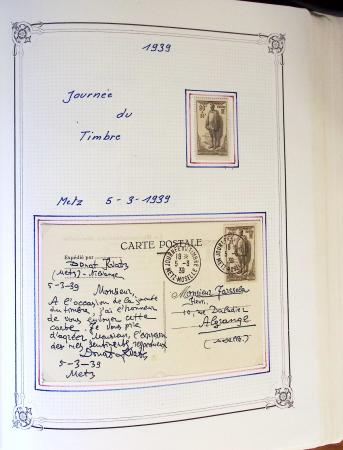 1939
Journée
du
Timbre
Metz 5-3-1939
CARTE POSTALE
Expédié par Donat
(Metz)
5-3-39
Monsieur,
A l'occasion de la journée
du timbre, j'ai l'honneur
de vous envoyer cette
carte. Je vous prie
d'agréer Monsieur, l'expression
de mes sentiments respectueux
Donat
5-3-39
Metz
JOURNÉE DU TIMBRE
18
5-3
39
METZ-MOSELLE
Monsieur
10, rue
Algrange
(Moselle)